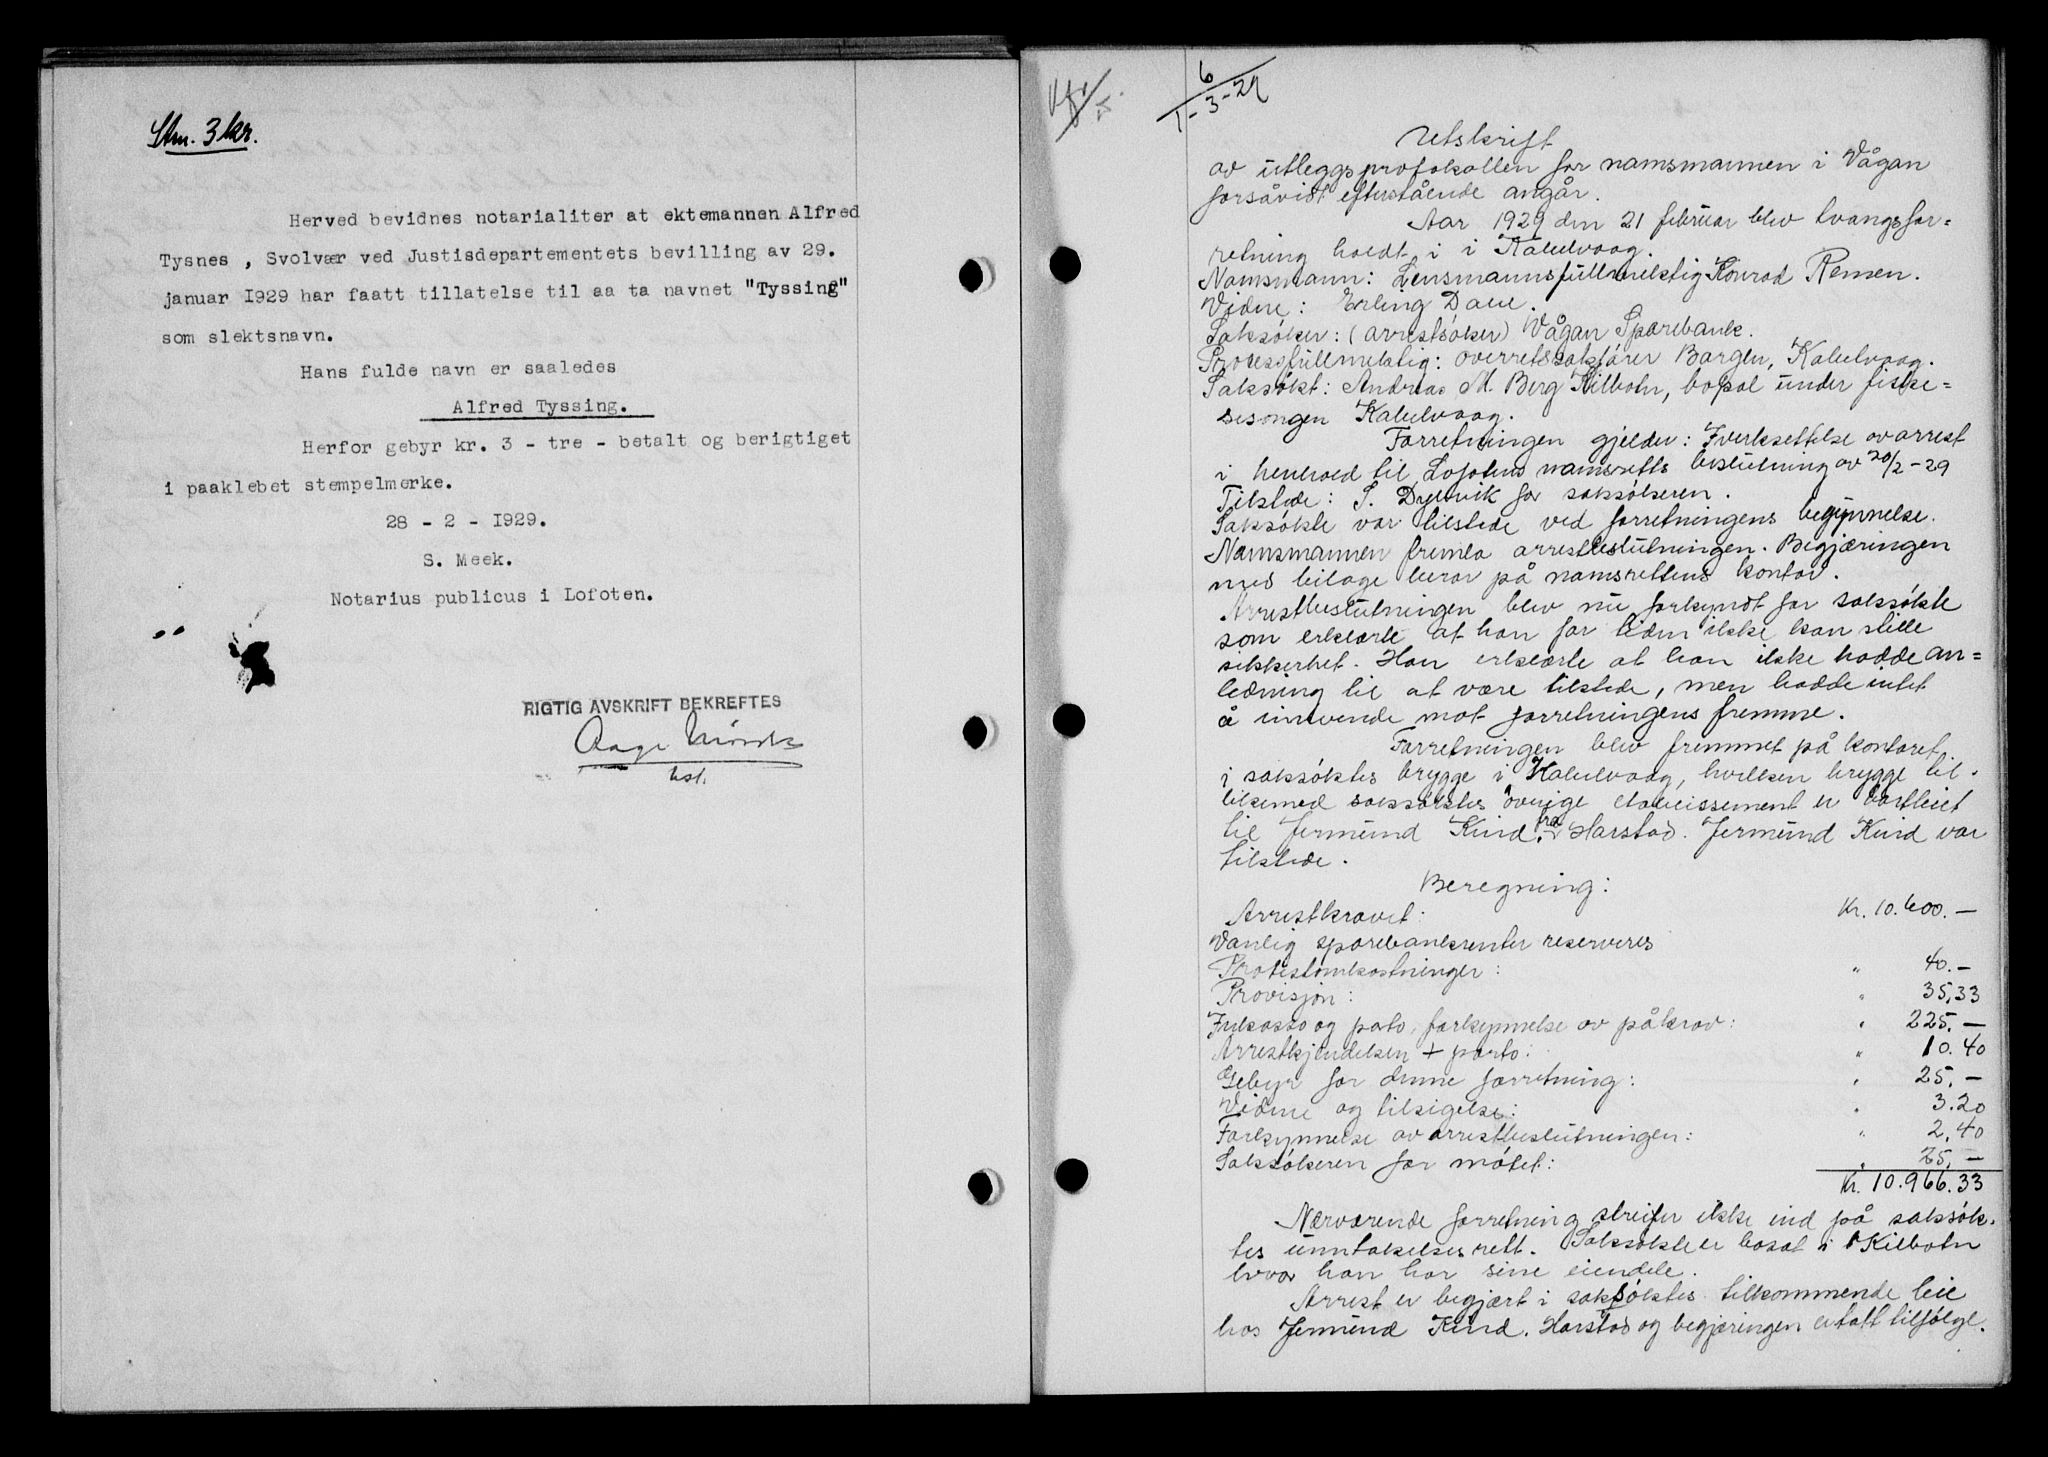 Stm. 3 kr.
Herved bevidnes notarialiter at ektemannen Alfred
Tysnes , Svolvær ved Justisdepartementets bevilling av 29.
januar 1929 har faatt tillatelse til aa ta navnet "Tyssing"
som slektsnavn.
Hans fulde navn er saaledes
Alfred Tyssing.
Herfor gebyr kr. 3 - tre - betalt og berigtiget
i paaklebet stempelmerke.
28 - 2 - 1929.
S. Meek.
Notarius publicus i Lofoten.
RIGTIG AVSKRIFT BEKREFTES
Aage
bst.
6
1-3-29
Utskrift
av utleggsprotokollen for namsmannen i Vågan
forsåvidt efterstående angår.
Aar 1929 den 21 februar blev tvangsfor=
retning holdt i i Kabelvaag.
Namsmann: Lensmannsfullmektig Konrad Remen.
Vidne: Erling Dale.
Saksøker: (arrestsøker) Vågan Sparebank.
Prosessfullmektig: overretssakfører Borgen, Kabelvaag.
Saksøkt: Andreas M. Berg Kilbotn, bopæl under fiske=
sesongen Kabelvaag.
Forretningen gjelder: Iverksettelse av arrest
i henhold til Lofotens namsretts beslutning av 20/2-29
Tilstede: S. Dyrvik for saksøkeren.
Saksøkte var tilstede ved forretningens begynnelse.
Namsmannen fremla arrestbeslutningen. Begjæringen
med bilage beror på namsrettens kontor.
Arrestbeslutningen blev nu forkyndt for saksøkte
som erklærte at han for tiden ikke kan stille
sikkerhet. Han erklærte at han ikke hadde an=
ledning til at være tilstede, men hadde intet
å innvende mot forretningens fremme.
Forretningen blev fremmet på kontoret
i saksøktes brygge i Kabelvaag, hvilken brygge til-
likemed saksøktes øvrige etablissement er bortleiet
til Jermund Kind fra Harstad. Jermund Kind var
tilstede.
Beregning:
Arrestkravet: Kr. 10.600.-
Vanlig sparebankrenter reserveres
Protestomkostninger: " 40.-
Provisjon: " 35,33
Inkasso og porto, forkynnelse av påkrav: " 225.-
Arrestkjendelsen + porto: " 10.40
Gebyr for denne forretning: " 25.-
Vidne og tilsigelse: " 3.20
Forkynnelse av arrestbeslutningen: " 2,40
Saksøkeren for møtet: " 25,-
Kr. 10.966.33
Nærværende forretning streifer ikke ind på saksøk-
tes unntakelsesrett. Saksøkte er bosat i Kilbotn
hvor han har sine eiendele.
Arrest er begjært i saksøktes tilkommende leie
hos Jermund Kind. Harstad og begjæringen er tatt tilfølge.